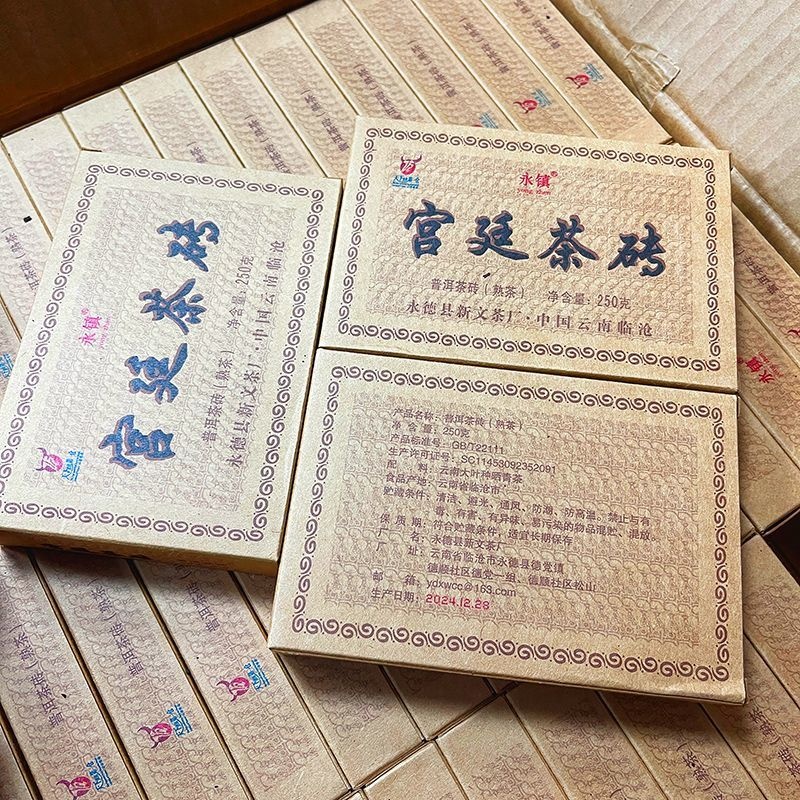 永镇®
yong zhen
宫廷茶砖
普洱茶砖（熟茶） 净含量：250克
永德县新文茶厂·中国云南临沧
永镇®
yong zhen
宫廷茶砖
普洱茶砖（熟茶） 净含量：250克
永德县新文茶厂·中国云南临沧
产品名称：普洱茶砖（熟茶）
净含量：250克
产品标准号：GB/T22111
生产许可证号：SC11453092352091
配料：云南大叶种晒青茶
食品产地：云南省临沧市
贮藏条件：清洁、避光、通风、防潮、防高温。禁止与有
毒、有害、有异味、易污染的物品混贮、混放。
保质期：符合贮藏条件，适宜长期保存
厂名：永德县新文茶厂
厂址：云南省临沧市永德县德党镇
德顺社区德党一组、德顺社区松山
邮箱：ydkwcc@163.com
生产日期：2024.12.28
普洱茶砖（熟茶）
普洱茶砖（熟茶）
普洱茶砖（熟茶）